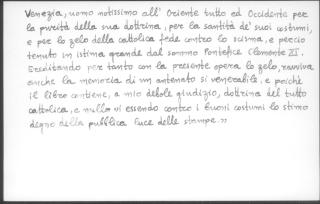 Venezia, uomo notissimo all' Oriente tutto ed Occidente per
la purità della sua dottrina, per la santità de' suoi costumi,
e per lo zelo della cattolica fede contro lo scisma, e perciò
tenuto in istima grande dal sommo Pontefice Clemente XI.
Ereditando per tanto con la presente opera lo zelo, ravviva
anche la memoria di un antenato sì venerabile, e poichè
il libro contiene, a mio debole giudizio, dottrina del tutto
cattolica, e nulla vi essendo contro i buoni costumi lo stimo
degno della pubblica luce delle stampe.»